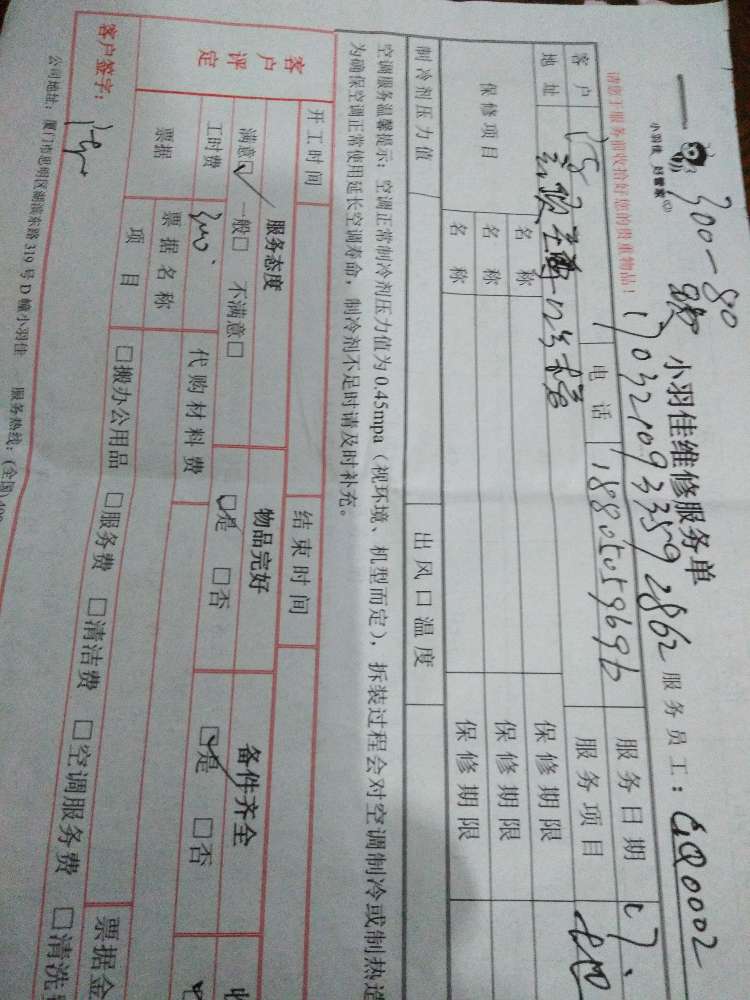 300-80
小羽佳 好管家
小羽佳维修服务单
服务员工：GQ0002
请您于服务前收拾好您的贵重物品！
客户 电话 18805059696 服务日期
地址 服务项目
保修项目 名称 保修期限
名称 保修期限
名称 保修期限
制冷剂压力值 出风口温度
空调服务温馨提示：空调正常制冷剂压力值为0.45mpa（视环境、机型而定），拆装过程会对空调制冷或制热造
为确保空调正常使用延长空调寿命，制冷剂不足时请及时补充。
开工时间 结束时间
客户评定 服务态度 物品完好 备件齐全
满意☑ 一般□ 不满意□ ☑是 □否 ☑是 □否
工时费 300 代购材料费
票据 票据名称 票据金
项目 □搬办公用品 □服务费 □清洁费 □空调服务费 □清洗
客户签字：
公司地址：厦门市思明区湖滨东路319号D幢小羽佳 服务热线：(全国)400